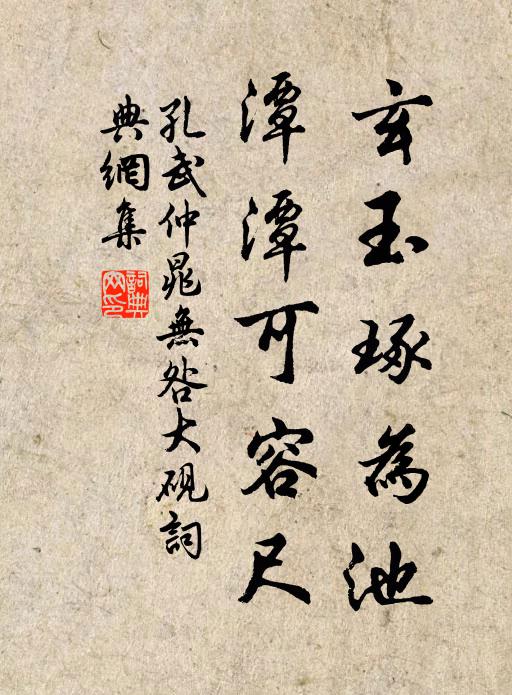 玄玉琢為池
潭潭可容尺
孔武仲晁無咎大硯詞
典網集
詞典
网印